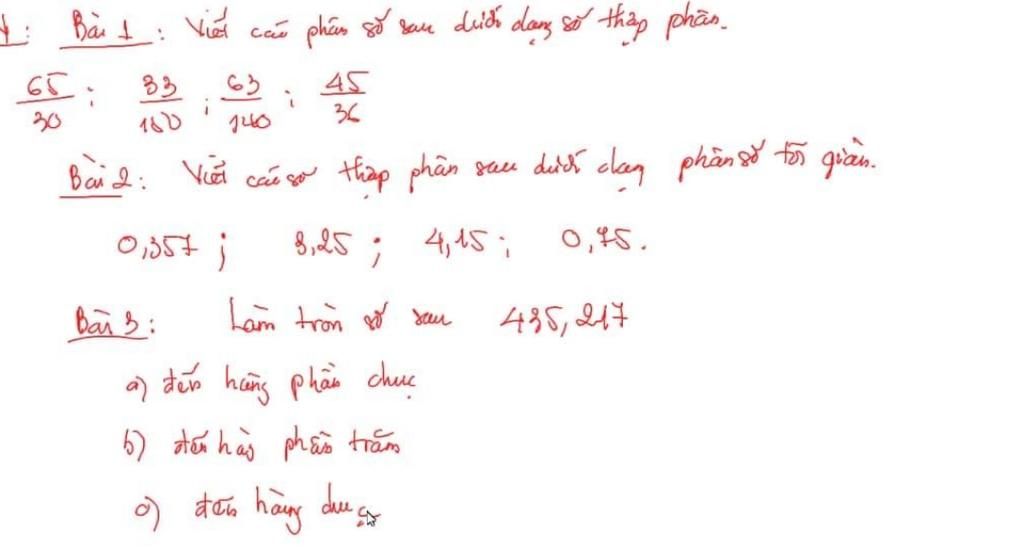 Bài 1: Viết các phân số sau dưới dạng số thập phân.
65/30 ; 33/ ; 63/140 ; 45/36
Bài 2: Viết các số thập phân sau dưới dạng phân số tối giản.
0,357 ; 3,25 ; 4,15 ; 0,75.
Bài 3: Làm tròn số sau 435,217
a) đến hàng phần chục
b) đến hàng phần trăm
c) đến hàng chục